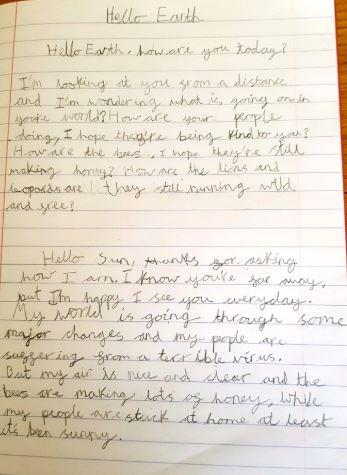 Hello Earth
Hello Earth, how are you today?
I'm looking at you from a distance
and I'm wondering what is going on in
you're world? How are your people
doing, I hope they're being kind to you?
How are the bees, I hope they're still
making honey? How are the lions and
leopards are they still running wild
and free?
Hello Sun, thanks for asking
how I am. I know you're far away,
but I'm happy I see you everyday.
My world is going through some
major changes and my people are
suffering from a terrible virus.
But my air is nice and clear and the
bees are making lots of honey, while
my people are stuck at home at least
it's been sunny.